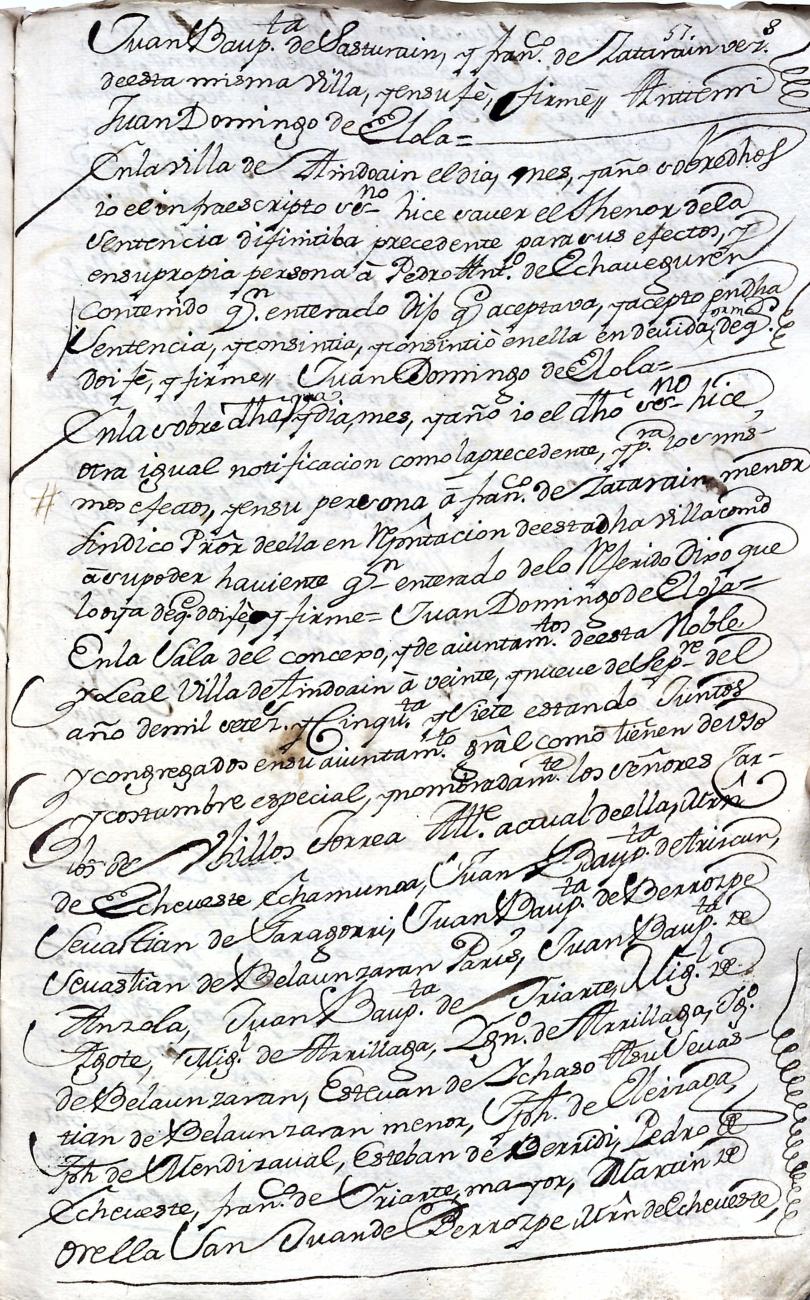 57. 8
Juan Baup.ta de Sasturain, y fran.co de Zatarain vez.s
de esta misma villa, y en su fè, firmè,, Antemi
Juan Domingo de Elola=
En la villa de Aindoain el dia, mes, y año sobredhos
io el infraescripto ess.no hice sauer el thenor de la
Sentencia difinitiba precedente para sus efectos, y
en su propia persona â Pedro Ant.o de Echaveguren
contenido q.n enterado dijo q.e aceptava, y acepto en dha
Sentencia, y consintia, y consintiò en ella en devida forma de q.e
doi fè, y firme,, Juan Domingo de Elola=
En la sobre dha villa, y dia, mes, y año io el dho ess.no hice
otra igual notificacion como la precedente, y p.ra los mis-
mos efectos, y en su persona â fran.co de Zatarain menor
sindico Prôr de ella en Rpñtacion de esta dha villa como
â su poder haviente q.n enterado de lo Rferido Dixo que
lo oya de q.e doi fè, y firme= Juan Domingo de Elola=
En la Sala del concexo, y de aiuntam.tos de esta Noble
y Leal Villa de Aindoain â veinte, y nueve de Sep.re del
año de mil setez.s y Cinqu.ta y Siete estando Juntos
y congregados en su aiuntam.to grâl como tienen de vso
y costumbre especial, y nombradam.te los señores Car-
los de Millos Torrea Alle. actual de ella, Mrñ
de Echeveste Echamunoa, Juan Baup.ta de Ariscun,
Sevastian de Garagorri, Juan Baup.ta de Berrozpe
Sevastian de Belaunzaran Paris, Juan Baup.ta de
Anzola, Juan Baup.ta de Iriarte, Mig.l de
Agote, Mig.l de Arrillaga, Ygn.o de Arrillaga, Ig.o
de Belaunzaran, Estevan de Ychaso Asu Sevas-
tian de Belaunzaran menor, Jph. de Eleizaga
Jph de Mendizaval, Esteban de Berridi, Pedro de
Echeveste, fran.co de Yriarte, mayor, Martin de
Orella San Juan de Berrozpe Mrñ de Echeveste,